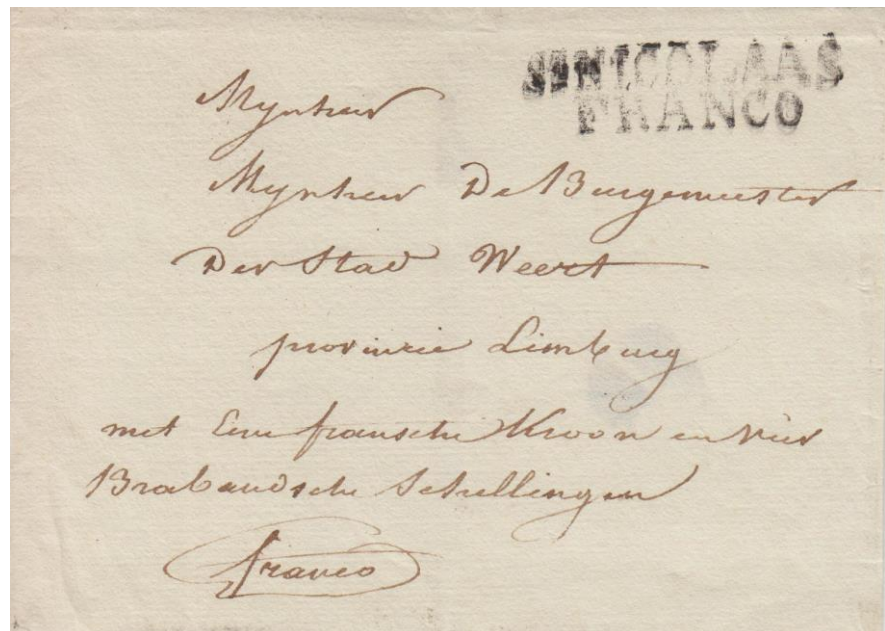 St NICOLAAS
FRANCO
Mynheer
Mynheer De Burgemeester
Der Stad Weert
provincie Limburg
met Eene fransche Kroon en Vier
Brabandsche Schellingen
franco